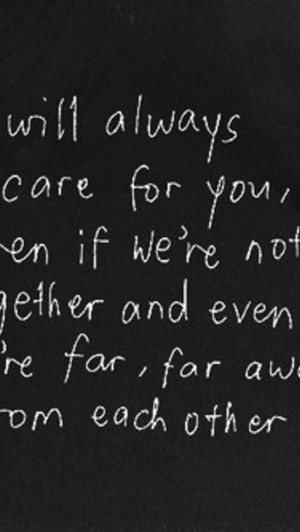 will always
care for you,
en if we're not
gether and even
're far, far awa
rom each other